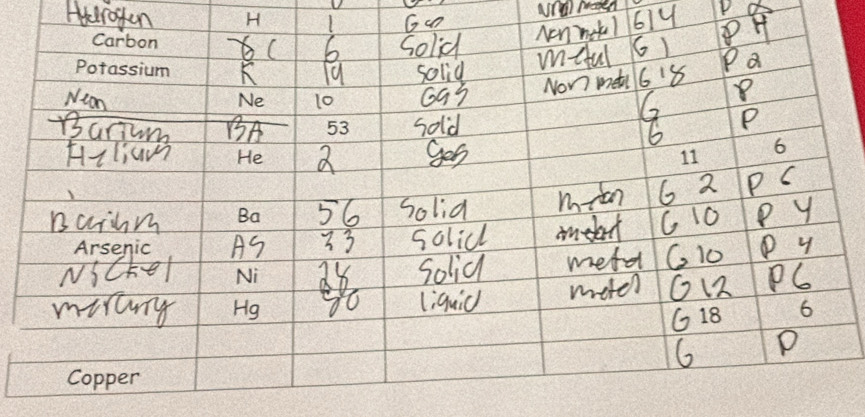 Hydrogen H 1 Gas Non metal
Carbon C 6 Solid Non metal G14 P
Potassium K 19 Solid metal G1 P4
Neon Ne 10 Gas Non metal G18 P2
Barium BA 53 Solid G P
Helium He 2 Gas G P
11 6
Barium Ba 56 Solid G2 P6
Arsenic AS 33 Solid G10 P4
Nickel Ni 28 Solid metal G10 P4
mercury Hg 80 liquid metal G12 P6
G18 6
Copper G P